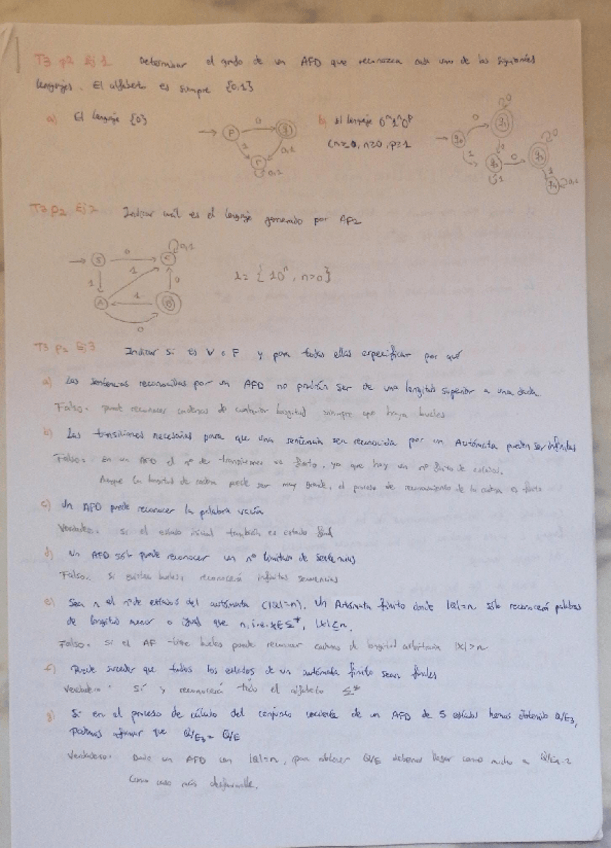 T3 p2 Ej 1 Determinar el grafo de un AFD que reconozca cada uno de los siguientes
lenguajes. El alfabeto es siempre {0,1}
a) El lenguaje {0}
b) el lenguaje 0ⁿ1ⁿ0ᵖ
T3 p2 Ej 2 Indicar cuál es el lenguaje generado por AF2
L = { 10ⁿ, n>0}
T3 p2 Ej 3 Indicar si es V o F y para todas ellas especificar por qué
a) Las sentencias reconocidas por un AFD no podrán ser de una longitud superior a una dada.
Falso. puede reconocer cadenas de cualquier longitud siempre que haya bucles
b) Las transiciones necesarias para que una sentencia sea reconocida por un Autómata pueden ser infinitas
Falso. En un AFD el nº de transiciones es finito, ya que hay un nº finito de estados.
Aunque la longitud de cadena puede ser muy grande, el proceso de reconocimiento de la cadena es finito
c) Un AFD puede reconocer la palabra vacía
Verdadero. Si el estado inicial también es estado final
d) Un AFD sólo puede reconocer un nº limitado de sentencias
Falso. Si existen bucles, reconocerá infinitas sentencias
e) Sea n el nº de estados del autómata (|Q|=n). Un Autómata finito donde |Q|=n sólo reconocerá palabras
de longitud menor o igual que n, i.e. x∈Σ*, |x|≤n.
Falso. Si el AF tiene bucles puede reconocer cadenas de longitud arbitraria |x|>n
f) Puede suceder que todos los estados de un autómata finito sean finales
Verdadero. Sí y reconocerá todo el alfabeto Σ*
g) Si en el proceso de cálculo del conjunto cociente de un AFD de 5 estados hemos obtenido Q/E₃,
podemos afirmar que Q/E₃ = Q/E
Verdadero. Dado un AFD con |Q|=n, para obtener Q/E debemos llegar como mucho a Q/Eₙ₋₂
como caso más desfavorable.